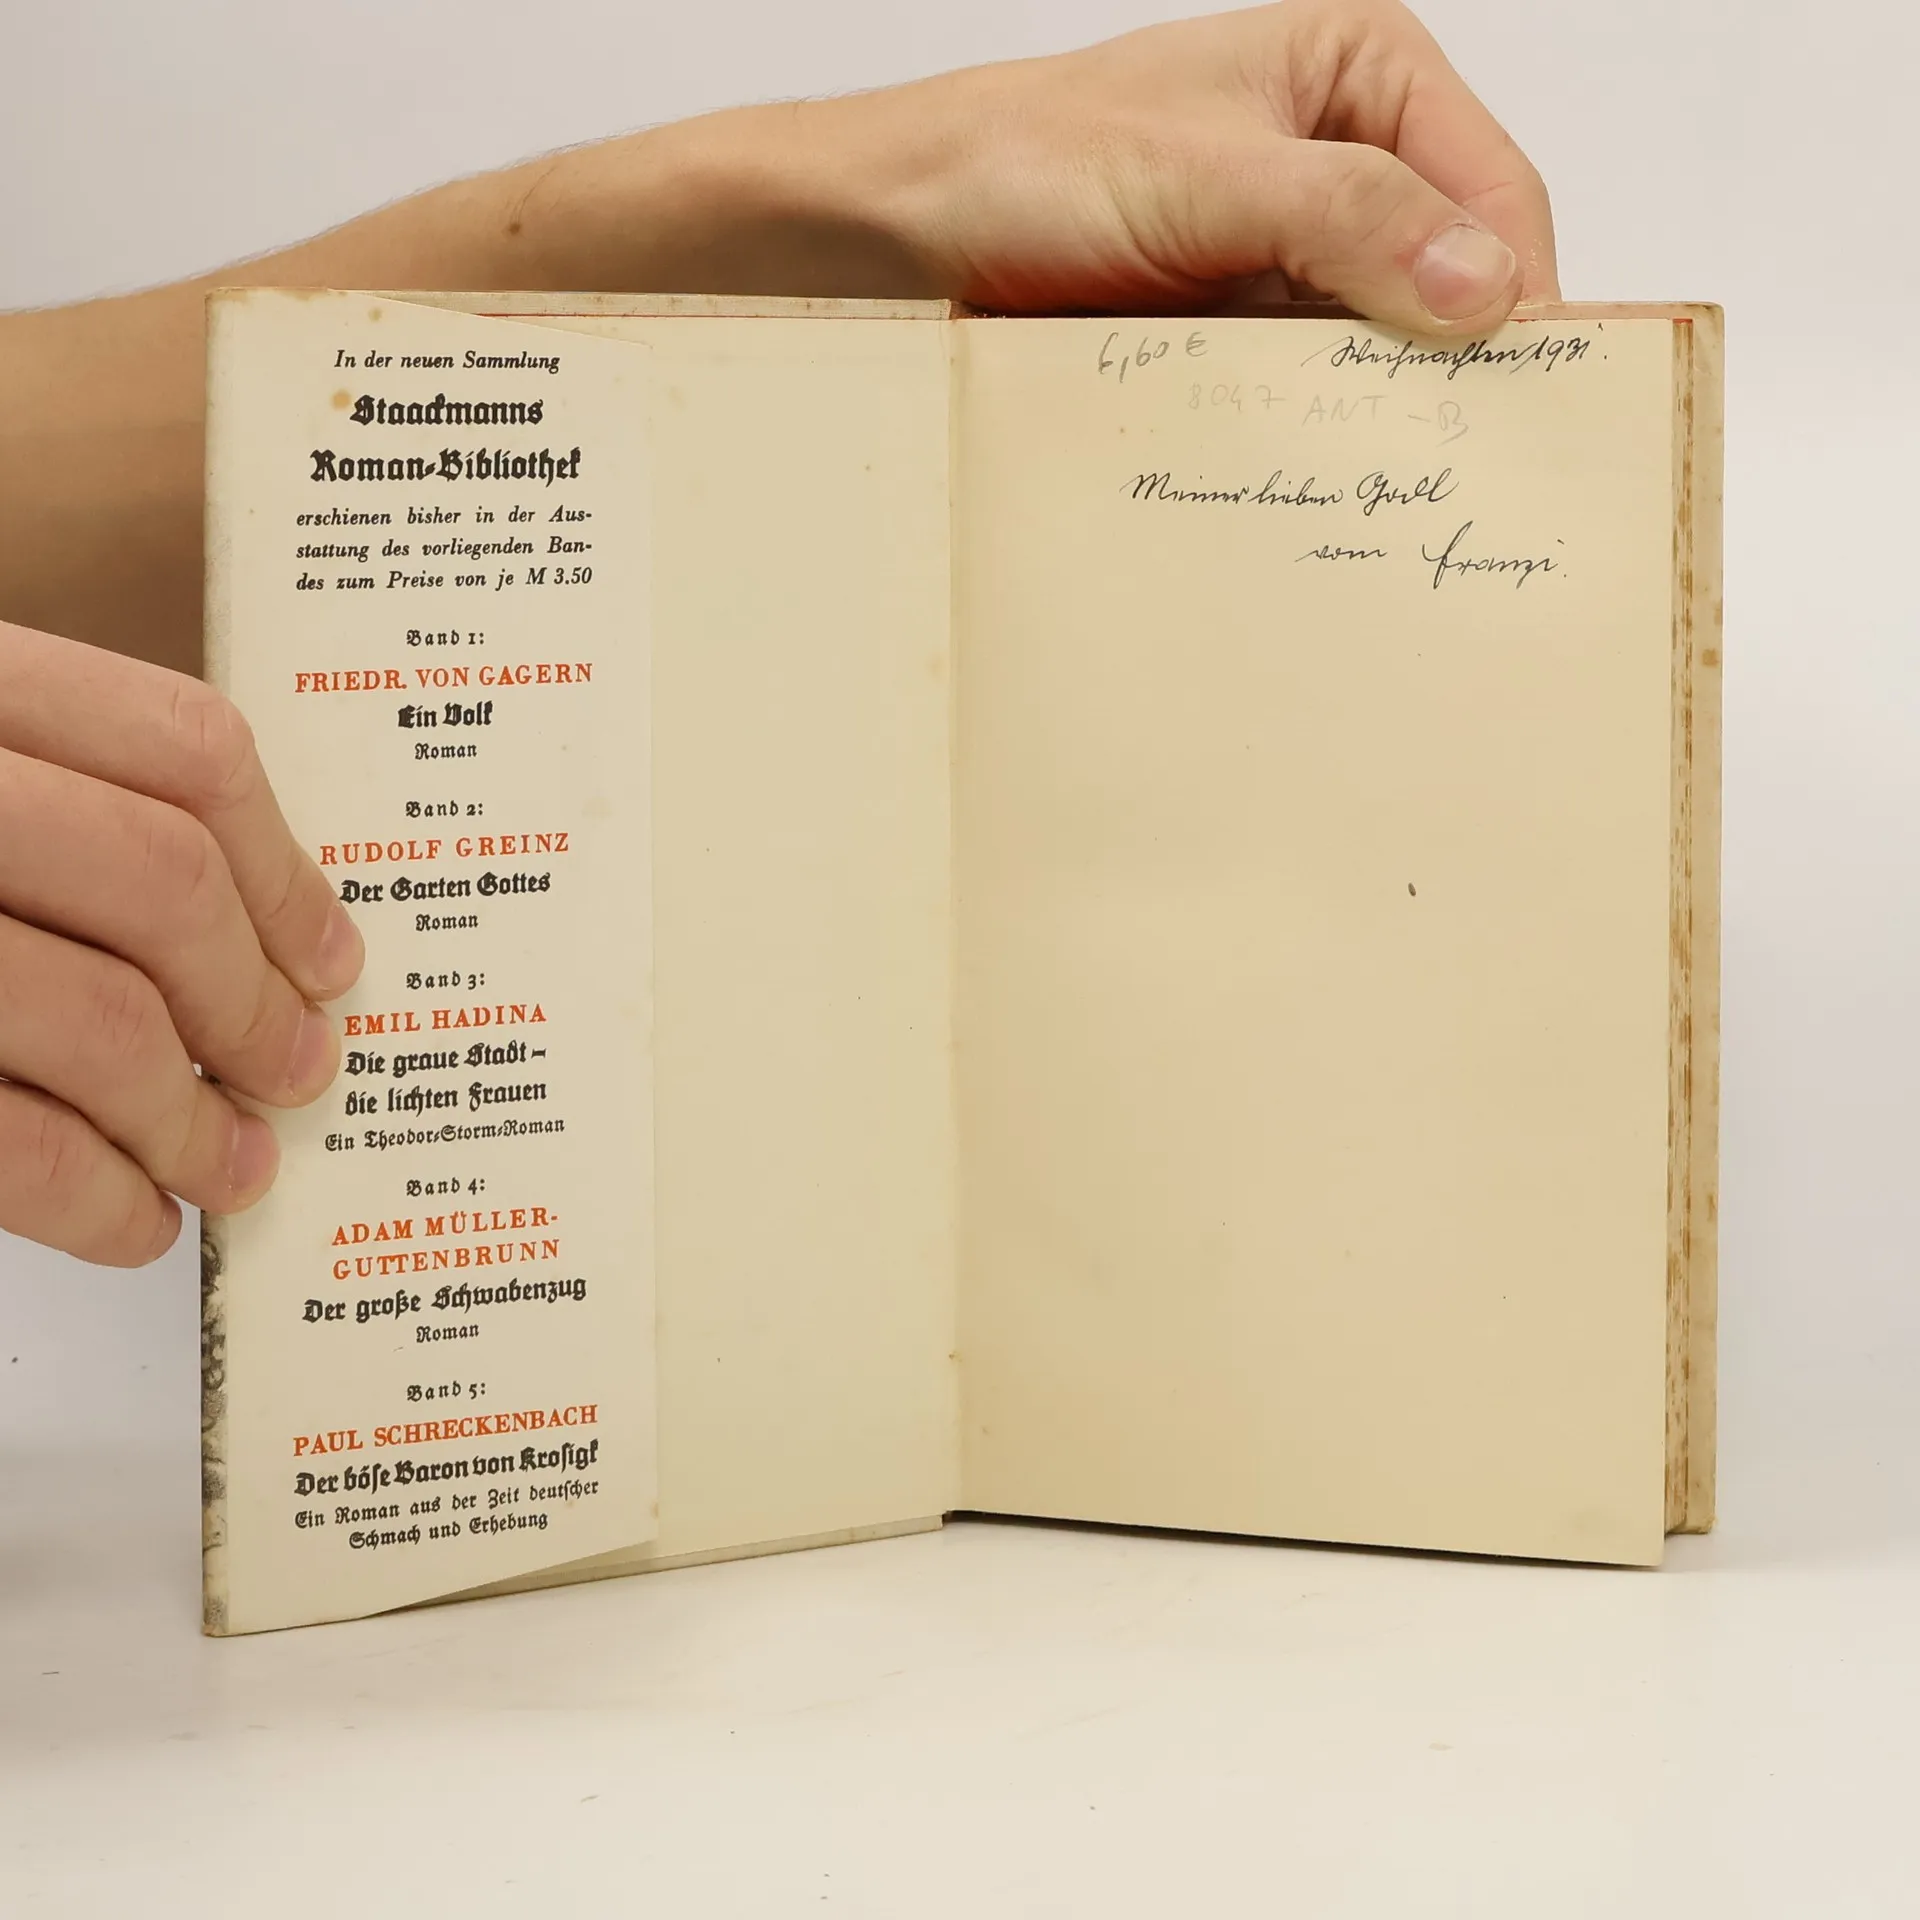 In der neuen Sammlung
Staackmanns
Roman-Bibliothek
erschienen bisher in der Aus-
stattung des vorliegenden Ban-
des zum Preise von je M 3.50
Band 1:
FRIEDR. VON GAGERN
Ein Volk
Roman
Band 2:
RUDOLF GREINZ
Der Garten Gottes
Roman
Band 3:
EMIL HADINA
Die graue Stadt –
die lichten Frauen
Ein Theodor-Storm-Roman
Band 4:
ADAM MÜLLER-
GUTTENBRUNN
Der große Schwabenzug
Roman
Band 5:
PAUL SCHRECKENBACH
Der böſe Baron von Kroſigk
Ein Roman aus der Zeit deutſcher
Schmach und Erhebung
6,60 €
Weihnachten 1931.
8047 ANT - B
Meiner lieben Godl
vom Franzi.